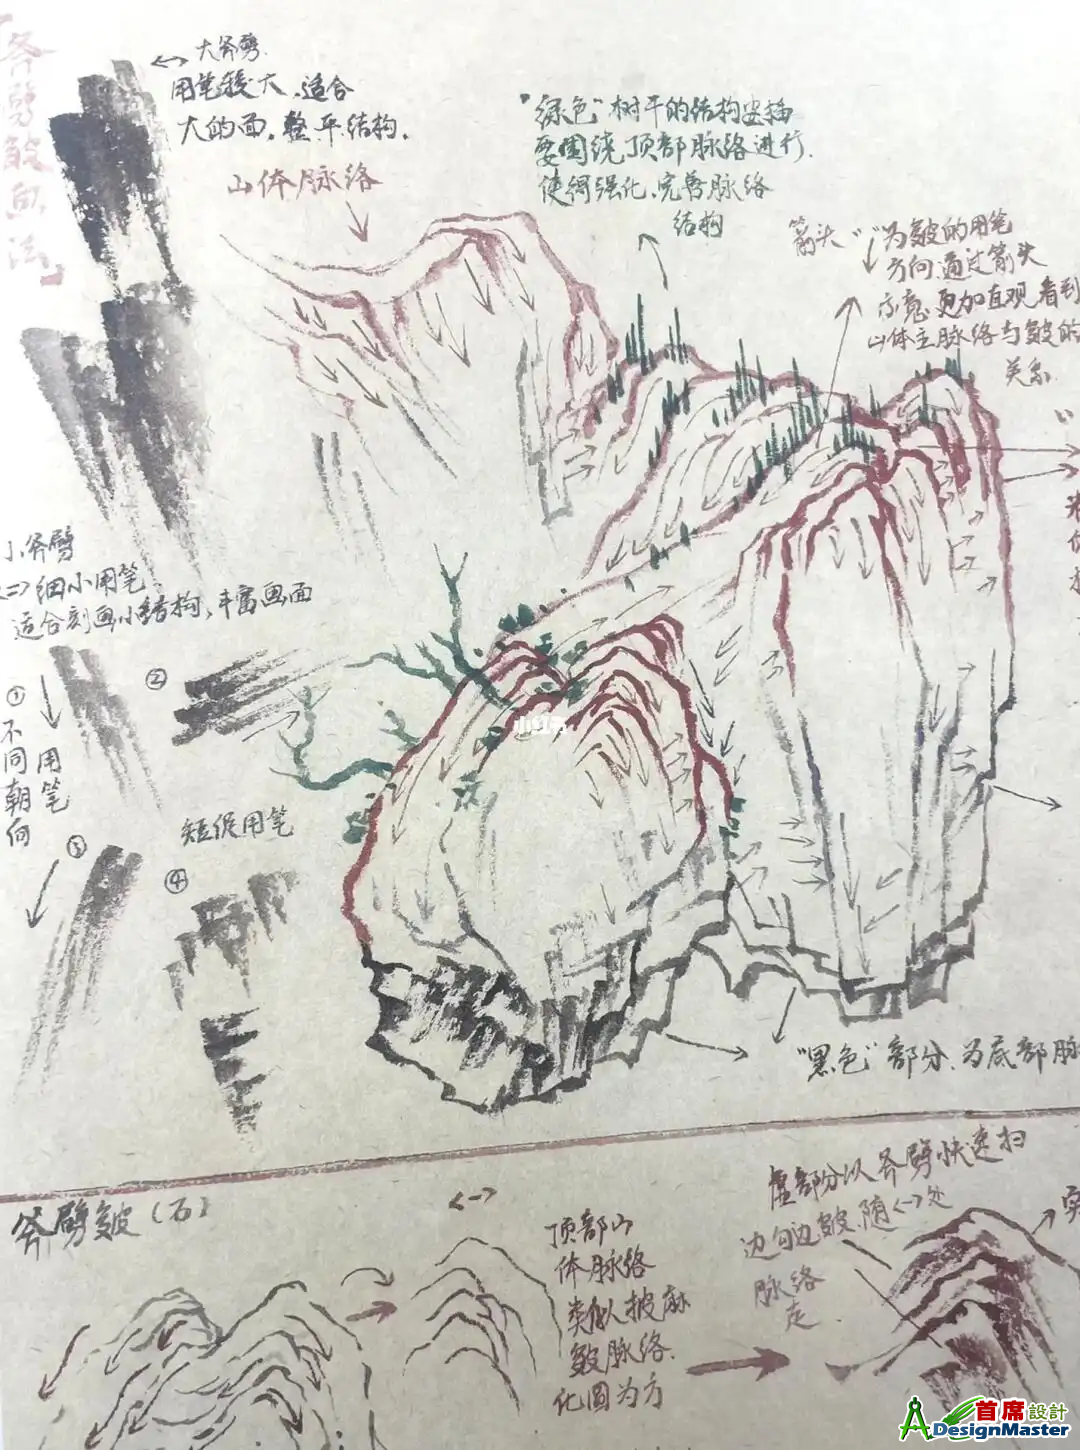 「斧劈皴画法」
大斧劈.
用笔较大.适合
大的面.整平结构.
山体脉络
"绿色"树干的结构安插
要围绕顶部脉络进行.
使得强化.完善脉络
结构
箭头"↓"为皴的用笔
方向通过箭头
示意更加直观看到
山体主脉络与皴的
关系.
小斧劈
(二)细小用笔
适合刻画小结构,丰富画面
①
不同朝向
用笔
②
③
短促用笔
④
小红书
"黑色"部分.为底部脉
斧劈皴(石)
<一>
顶部山
体脉络
类似披麻
皴脉络.
化圆为方
虚部分以斧劈快速扫
边勾边皴.随<一>处
脉络
走.
实
首席設計
ADesignMaster